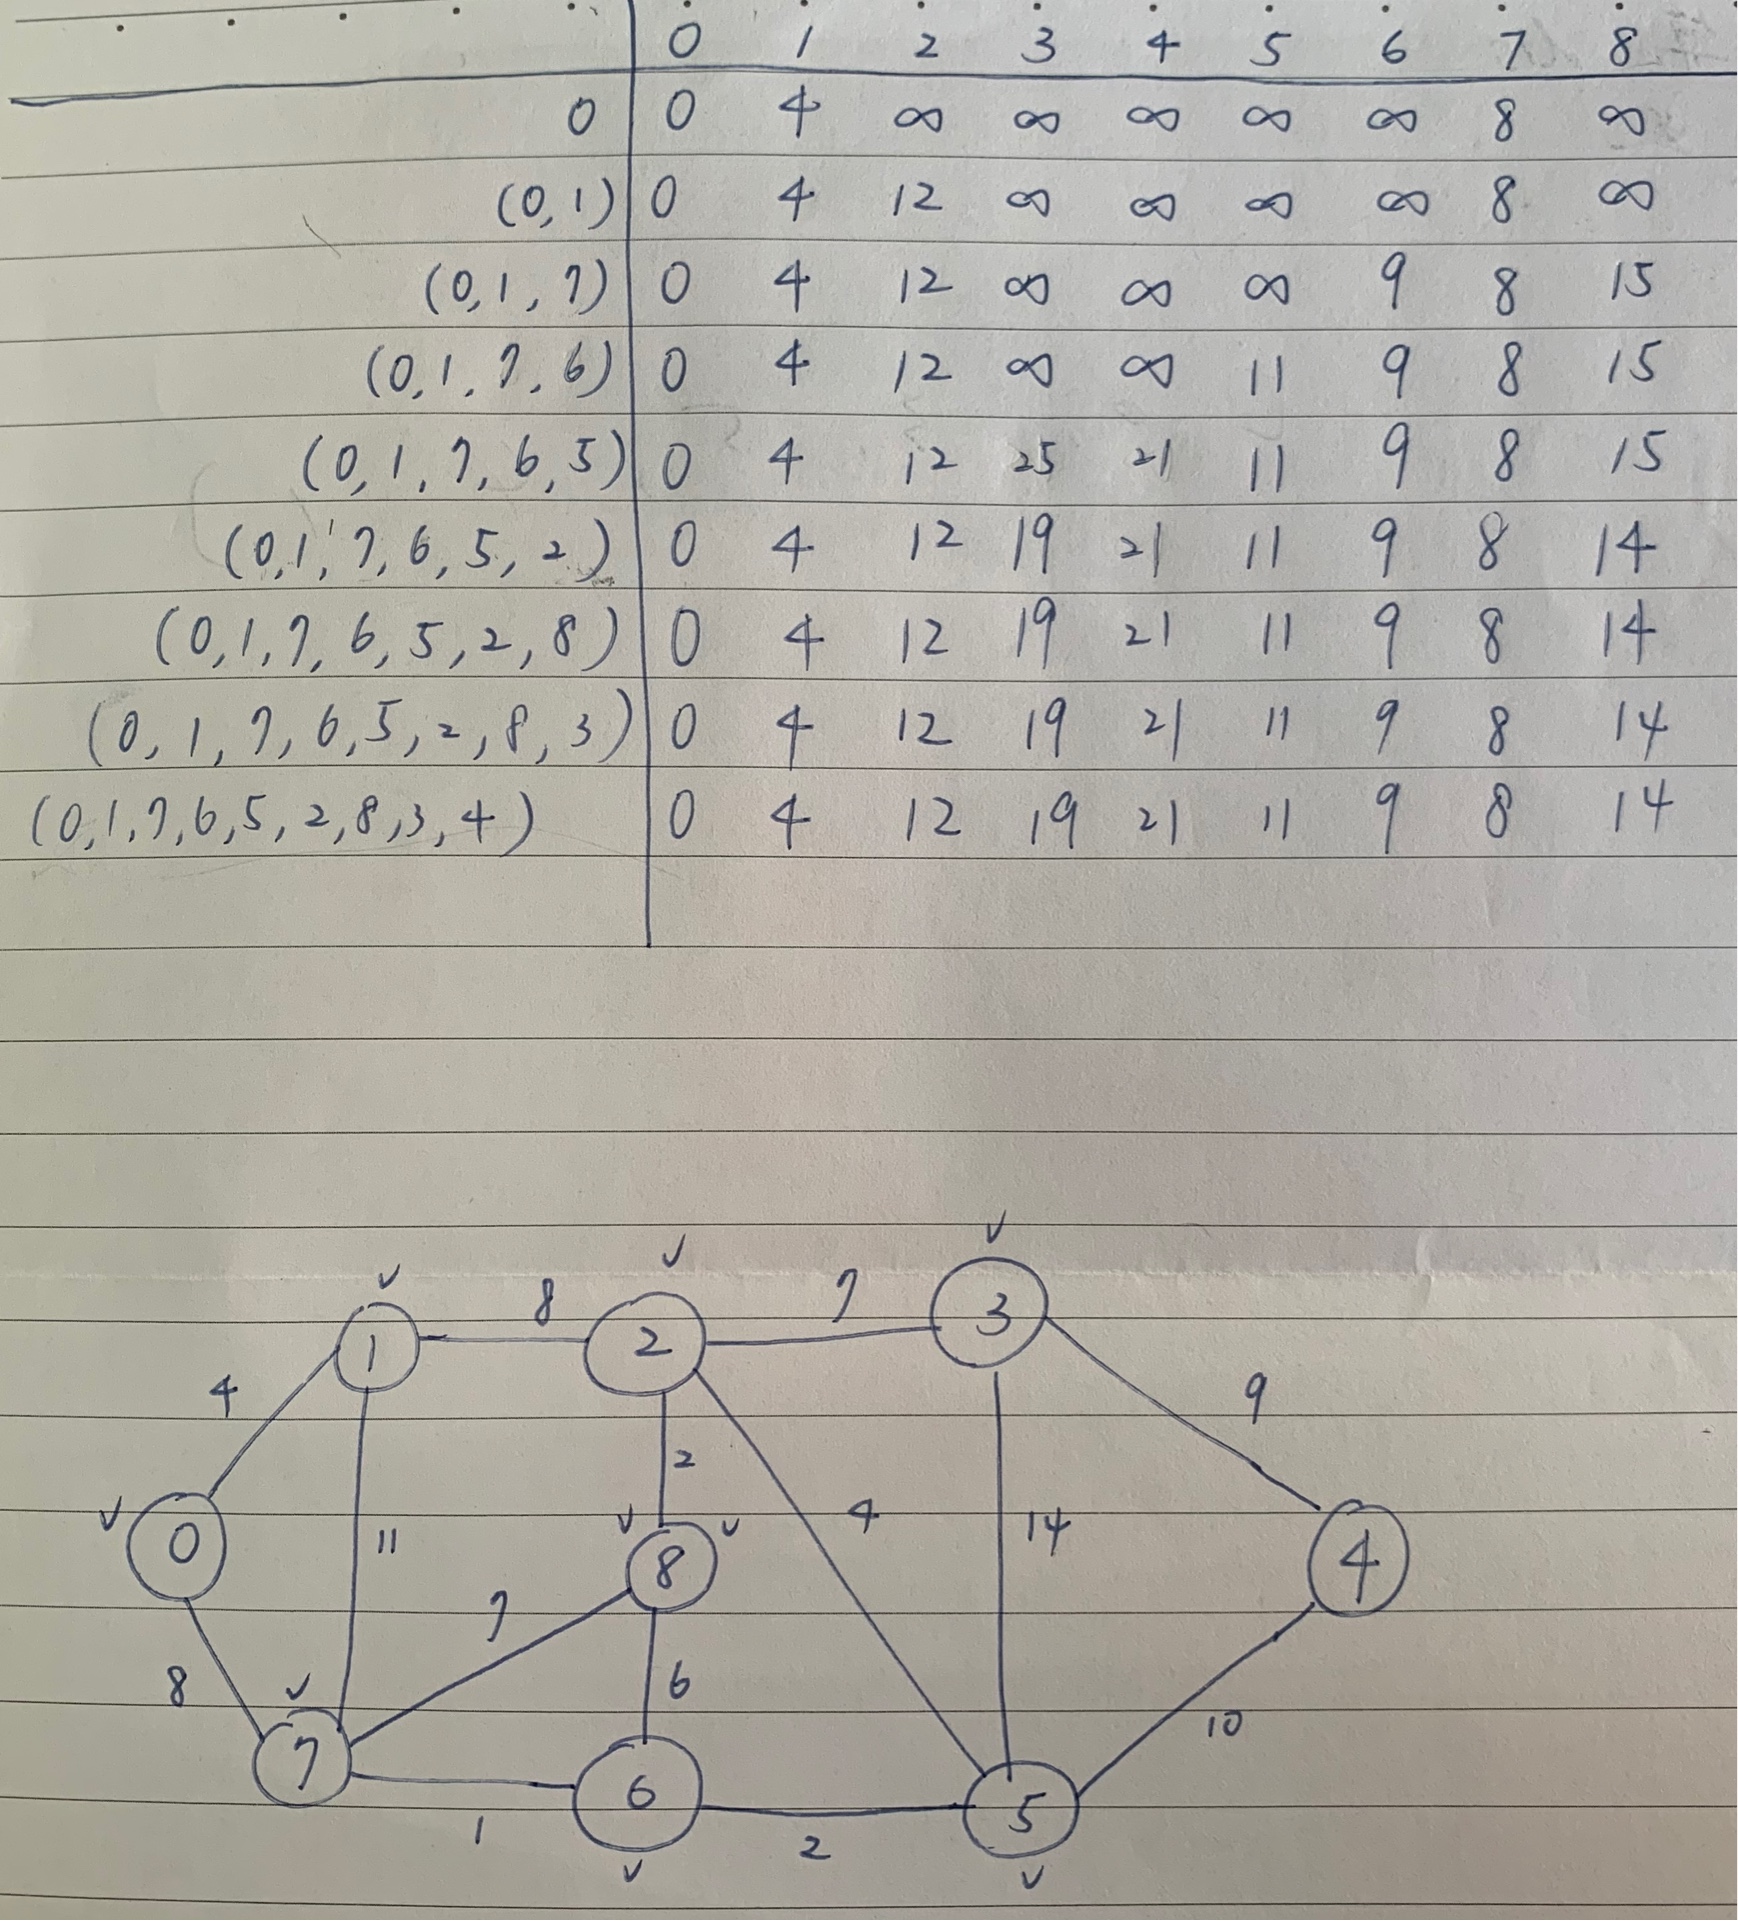 0 1 2 3 4 5 6 7 8
0 0 4 ∞ ∞ ∞ ∞ ∞ 8 ∞
(0,1) 0 4 12 ∞ ∞ ∞ ∞ 8 ∞
(0,1,7) 0 4 12 ∞ ∞ ∞ 9 8 15
(0,1,7,6) 0 4 12 ∞ ∞ 11 9 8 15
(0,1,7,6,5) 0 4 12 25 21 11 9 8 15
(0,1,7,6,5,2) 0 4 12 19 21 11 9 8 14
(0,1,7,6,5,2,8) 0 4 12 19 21 11 9 8 14
(0,1,7,6,5,2,8,3) 0 4 12 19 21 11 9 8 14
(0,1,7,6,5,2,8,3,4) 0 4 12 19 21 11 9 8 14
1 8 2 7 3
4 9
2
0 11 8 4 14 4
7
8 6
7 6 5 10
1 2